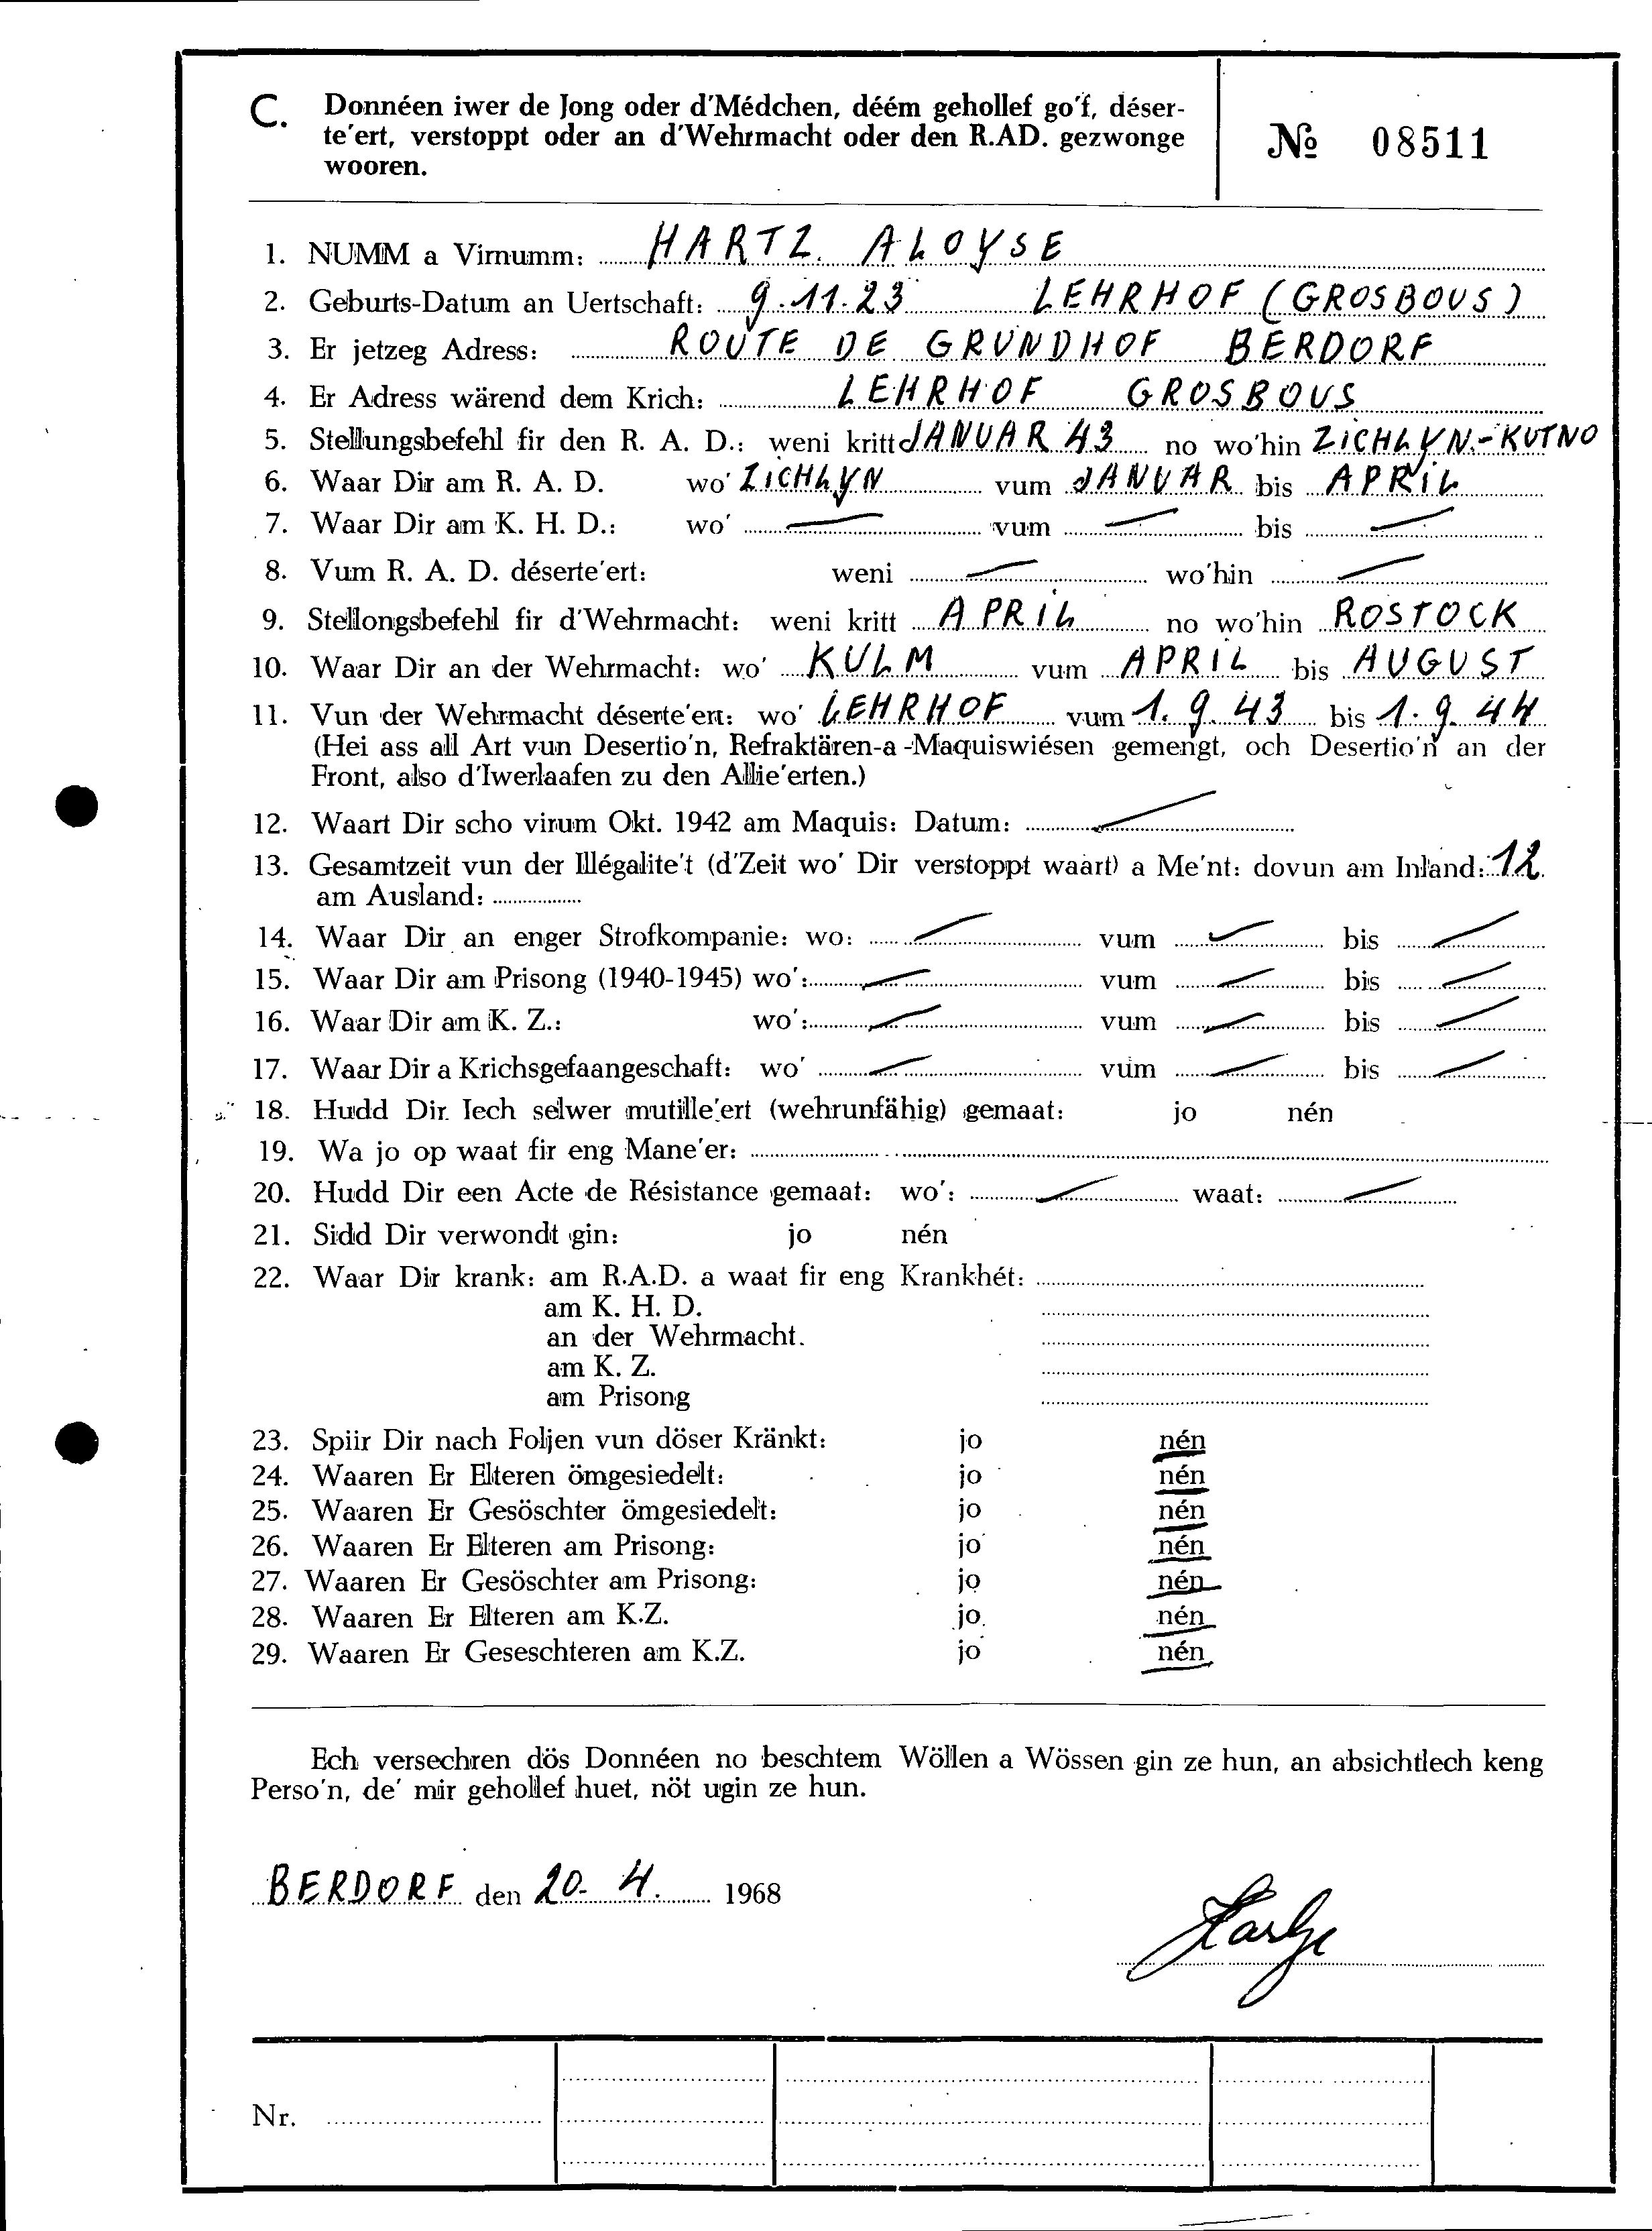 C. Donnéen iwer de Jong oder d'Médchen, déém gehollef go'f, déser-
te'ert, verstoppt oder an d'Wehrmacht oder den R.AD. gezwonge
wooren.
№ 08511
1. NUMM a Virnumm: HARTZ ALOYSE
2. Geburts-Datum an Uertschaft: 9.11.23 LEHRHOF (GROSBOUS)
3. Er jetzeg Adress: ROUTE DE GRUNDHOF BERDORF
4. Er Adress wärend dem Krich: LEHRHOF GROSBOUS
5. Stellungsbefehl fir den R. A. D.: weni kritt JANUAR 43 no wo'hin ZICHLYN-KUTNO
6. Waar Dir am R. A. D. wo' ZICHLYN vum JANUAR bis APRIL
7. Waar Dir am K. H. D.: wo' — vum — bis —
8. Vum R. A. D. déserte'ert: weni — wo'hin —
9. Stellongsbefehl fir d'Wehrmacht: weni kritt APRIL no wo'hin ROSTOCK
10. Waar Dir an der Wehrmacht: wo' KULM vum APRIL bis AUGUST
11. Vun der Wehrmacht déserte'ert: wo' LEHRHOF vum 1.9.43 bis 1.9.44
(Hei ass all Art vun Desertio'n, Refraktären-a-Maquiswiésen gemengt, och Desertio'n an der
Front, also d'Iwerlaafen zu den Allie'erten.)
12. Waart Dir scho virum Okt. 1942 am Maquis: Datum: —
13. Gesamtzeit vun der Illégalite't (d'Zeit wo' Dir verstoppt waart) a Me'nt: dovun am Inland: 12
am Ausland:
14. Waar Dir an enger Strofkompanie: wo: — vum — bis —
15. Waar Dir am Prisong (1940-1945) wo': — vum — bis —
16. Waar Dir am K. Z.: wo': — vum — bis —
17. Waar Dir a Krichsgefaangeschaft: wo' — vum — bis —
18. Hudd Dir Iech selwer mutille'ert (wehrunfähig) gemaat: jo nén
19. Wa jo op waat fir eng Mane'er:
20. Hudd Dir een Acte de Résistance gemaat: wo': — waat: —
21. Sidd Dir verwondt gin: jo nén
22. Waar Dir krank: am R.A.D. a waat fir eng Krankhét:
am K. H. D.
an der Wehrmacht.
am K. Z.
am Prisong
23. Spiir Dir nach Foljen vun döser Kränkt: jo nén
24. Waaren Er Elteren ömgesiedelt: jo nén
25. Waaren Er Gesöschter ömgesiedelt: jo nén
26. Waaren Er Elteren am Prisong: jo nén
27. Waaren Er Gesöschter am Prisong: jo nén
28. Waaren Er Elteren am K.Z. jo nén
29. Waaren Er Geseschteren am K.Z. jo nén
Ech versechren dös Donnéen no beschtem Wöllen a Wössen gin ze hun, an absichtlech keng
Perso'n, de' mir gehollef huet, nöt ugin ze hun.
BERDORF den 20. 4. 1968
Nr.